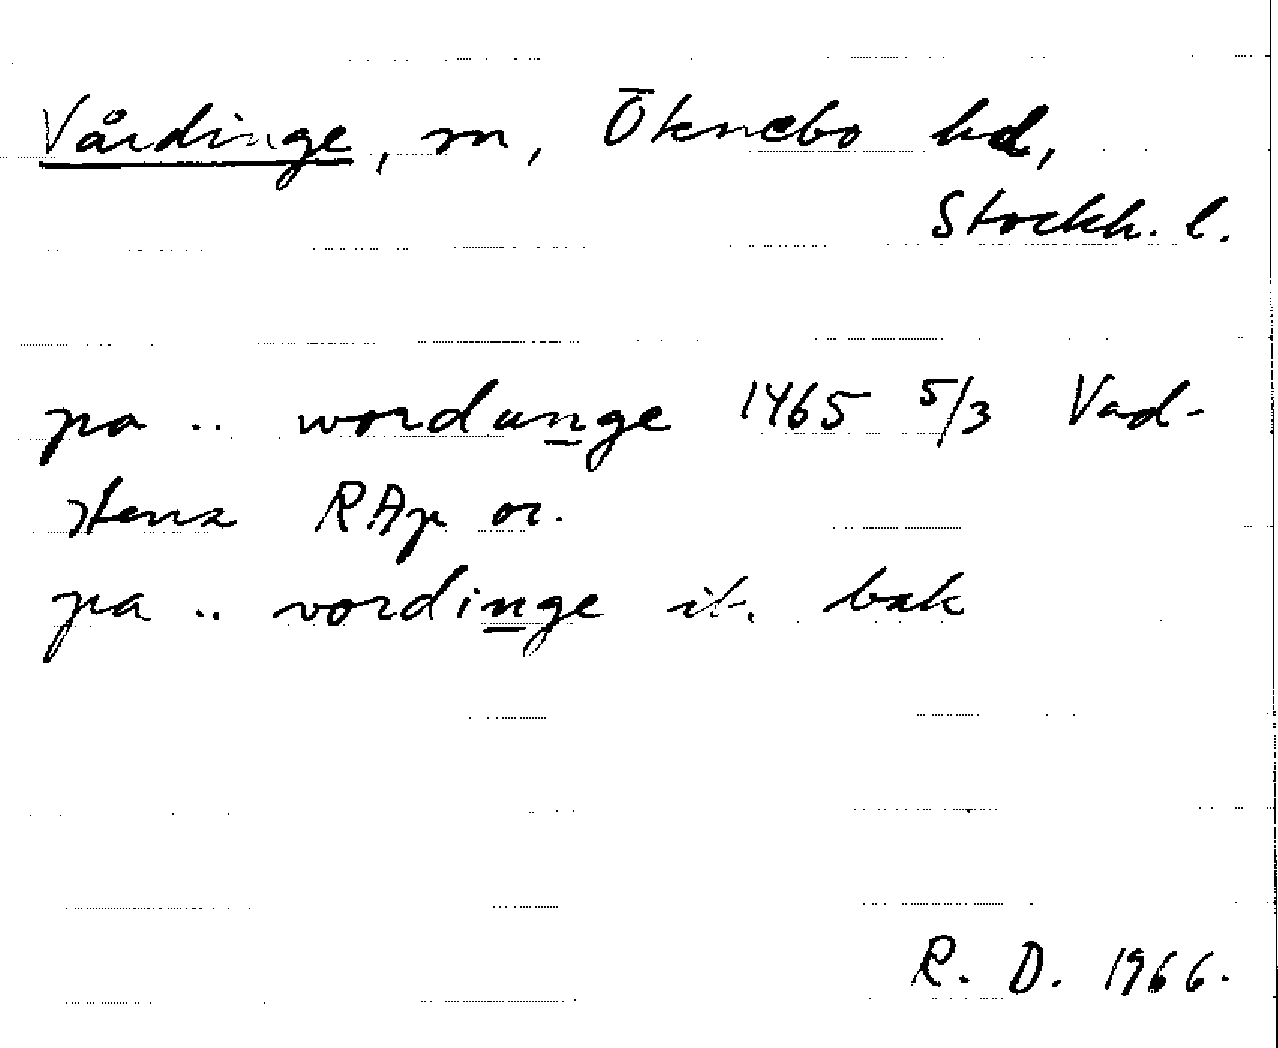 Vårdinge, sn, Öknebo hd,
Stockh. l.
pa .. wordunge 1465 5/3 Vad-
stena RAp or.
pa .. vordinge ib. bak
R. D. 1966.